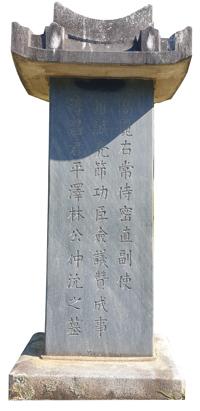 麗右常侍密直副使
誠亮節功臣僉議贊成事
君平澤林公仲沇之墓